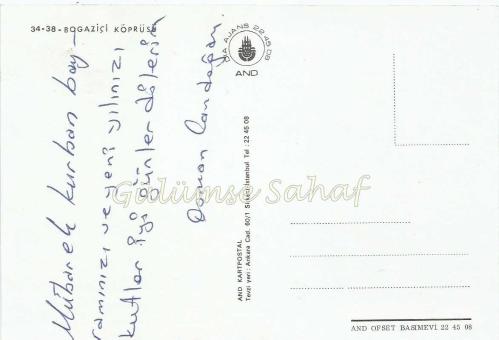 34-38-BOGAZİÇİ KÖPRÜSÜ
Mübarek kurban bay-
ramınızı ve yeni yılınızı
kutlar iyi günler dilerim
Osman Candoğan
AJANS 22 45 08
AND
AND KARTPOSTAL
Tevzi yeri: Ankara Cad. 60/1 Sirkeci-İstanbul Tel: 22 45 08
Güdümse Sahaf
AND OFSET BASIMEVİ 22 45 08